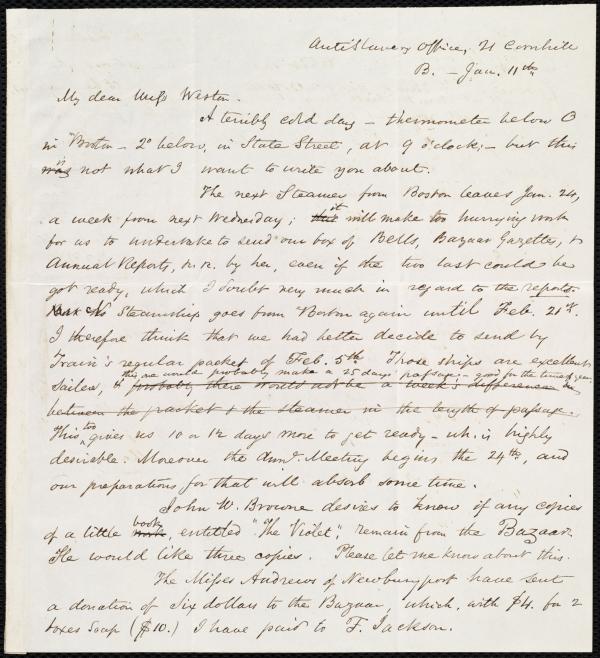 AntiSlavery Office, 21 Cornhill
B. – Jan. 11th
My dear Miss Weston.
A terribly cold day – thermometer below 0
in Boston – 2° below, in State Street, at 9 o'clock; – but this
was is not what I want to write you about.
The next Steamer from Boston leaves Jan. 24,
a week from next Wednesday; this it will make too hurrying work
for us to undertake to send our box of Bells, Bazaar Gazettes, &
Annual Reports, &c. &c. by her, even if the two last could be
got ready, which I doubt very much in regard to the reports.
No Steamship goes from Boston again until Feb. 21st.
I therefore think that we had better decide to send by
Train's regular packet of Feb. 5th. Those ships are excellent
this one would probably make a 25 days passage – good for the time of year.
Sailers, & probably there would not be a week's difference
between the packet & the steamer in the length of passage.
This, too, gives us 10 or 12 days more to get ready – wh. is highly
desirable. Moreover the Annl. Meeting begins the 24th, and
our preparations for that will absorb some time.
John W. Browne desires to know if any copies
of a little work book, entitled "The Violet", remain from the Bazaar.
He would like three copies. Please let me know about this.
The Misses Andrews of Newburyport have sent
a donation of Six dollars to the Bazaar, which, with $4. for 2
boxes Soap ($10.) I have paid to F. Jackson.